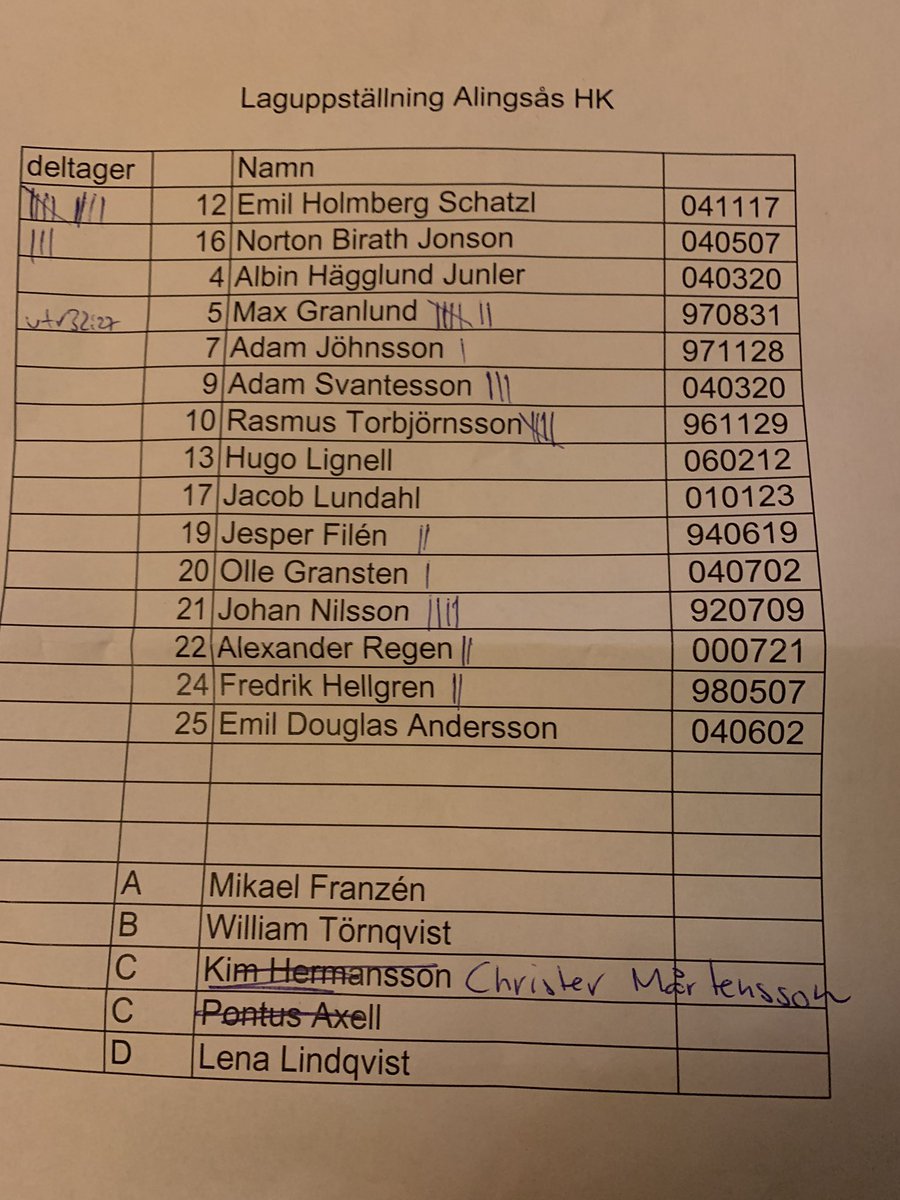 Laguppställning Alingsås HK
deltager Namn
12 Emil Holmberg Schatzl 041117
16 Norton Birath Jonson 040507
4 Albin Hägglund Junler 040320
utv 32:27 5 Max Granlund 970831
7 Adam Jöhnsson 971128
9 Adam Svantesson 040320
10 Rasmus Torbjörnsson 961129
13 Hugo Lignell 060212
17 Jacob Lundahl 010123
19 Jesper Filén 940619
20 Olle Gransten 040702
21 Johan Nilsson 920709
22 Alexander Regen 000721
24 Fredrik Hellgren 980507
25 Emil Douglas Andersson 040602
A Mikael Franzén
B William Törnqvist
C Kim Hermansson Christer Mårtensson
C Pontus Axell
D Lena Lindqvist